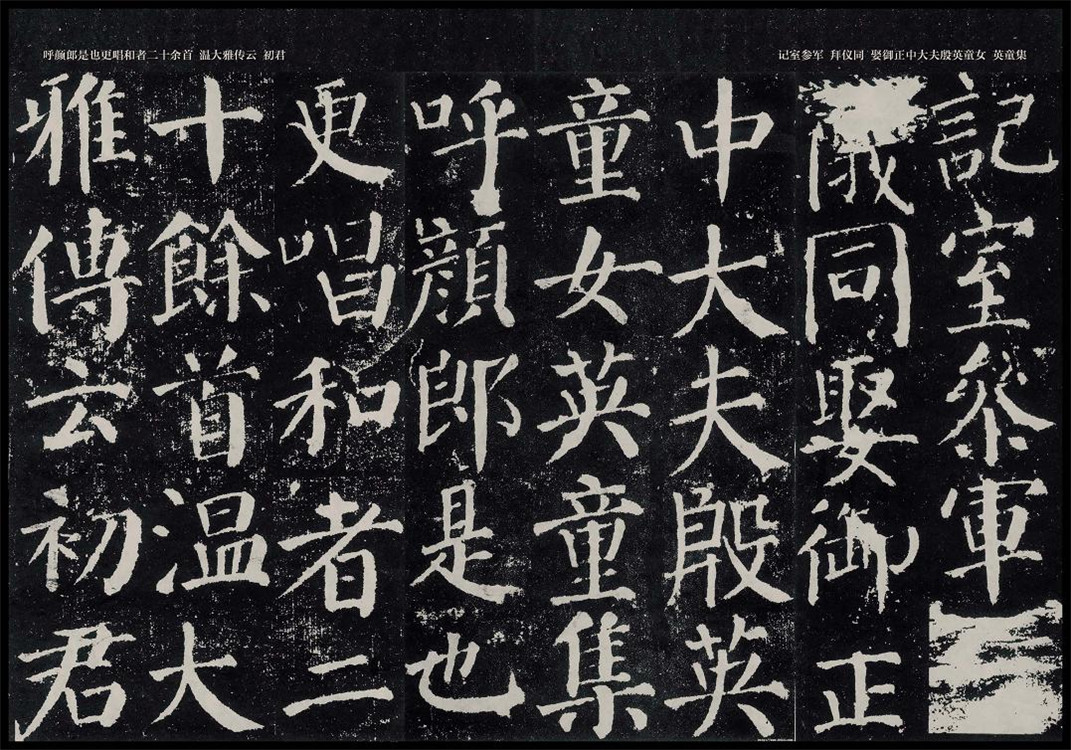 记室参军 拜仪同 娶御正中大夫殷英童女 英童集
呼颜郎是也更唱和者二十余首 温大雅传云 初君
記室參軍
儀同娶御正
中大夫殷英
童女英童集
呼顏郎是也
更唱和者二
十餘首温大
雅傳云初君